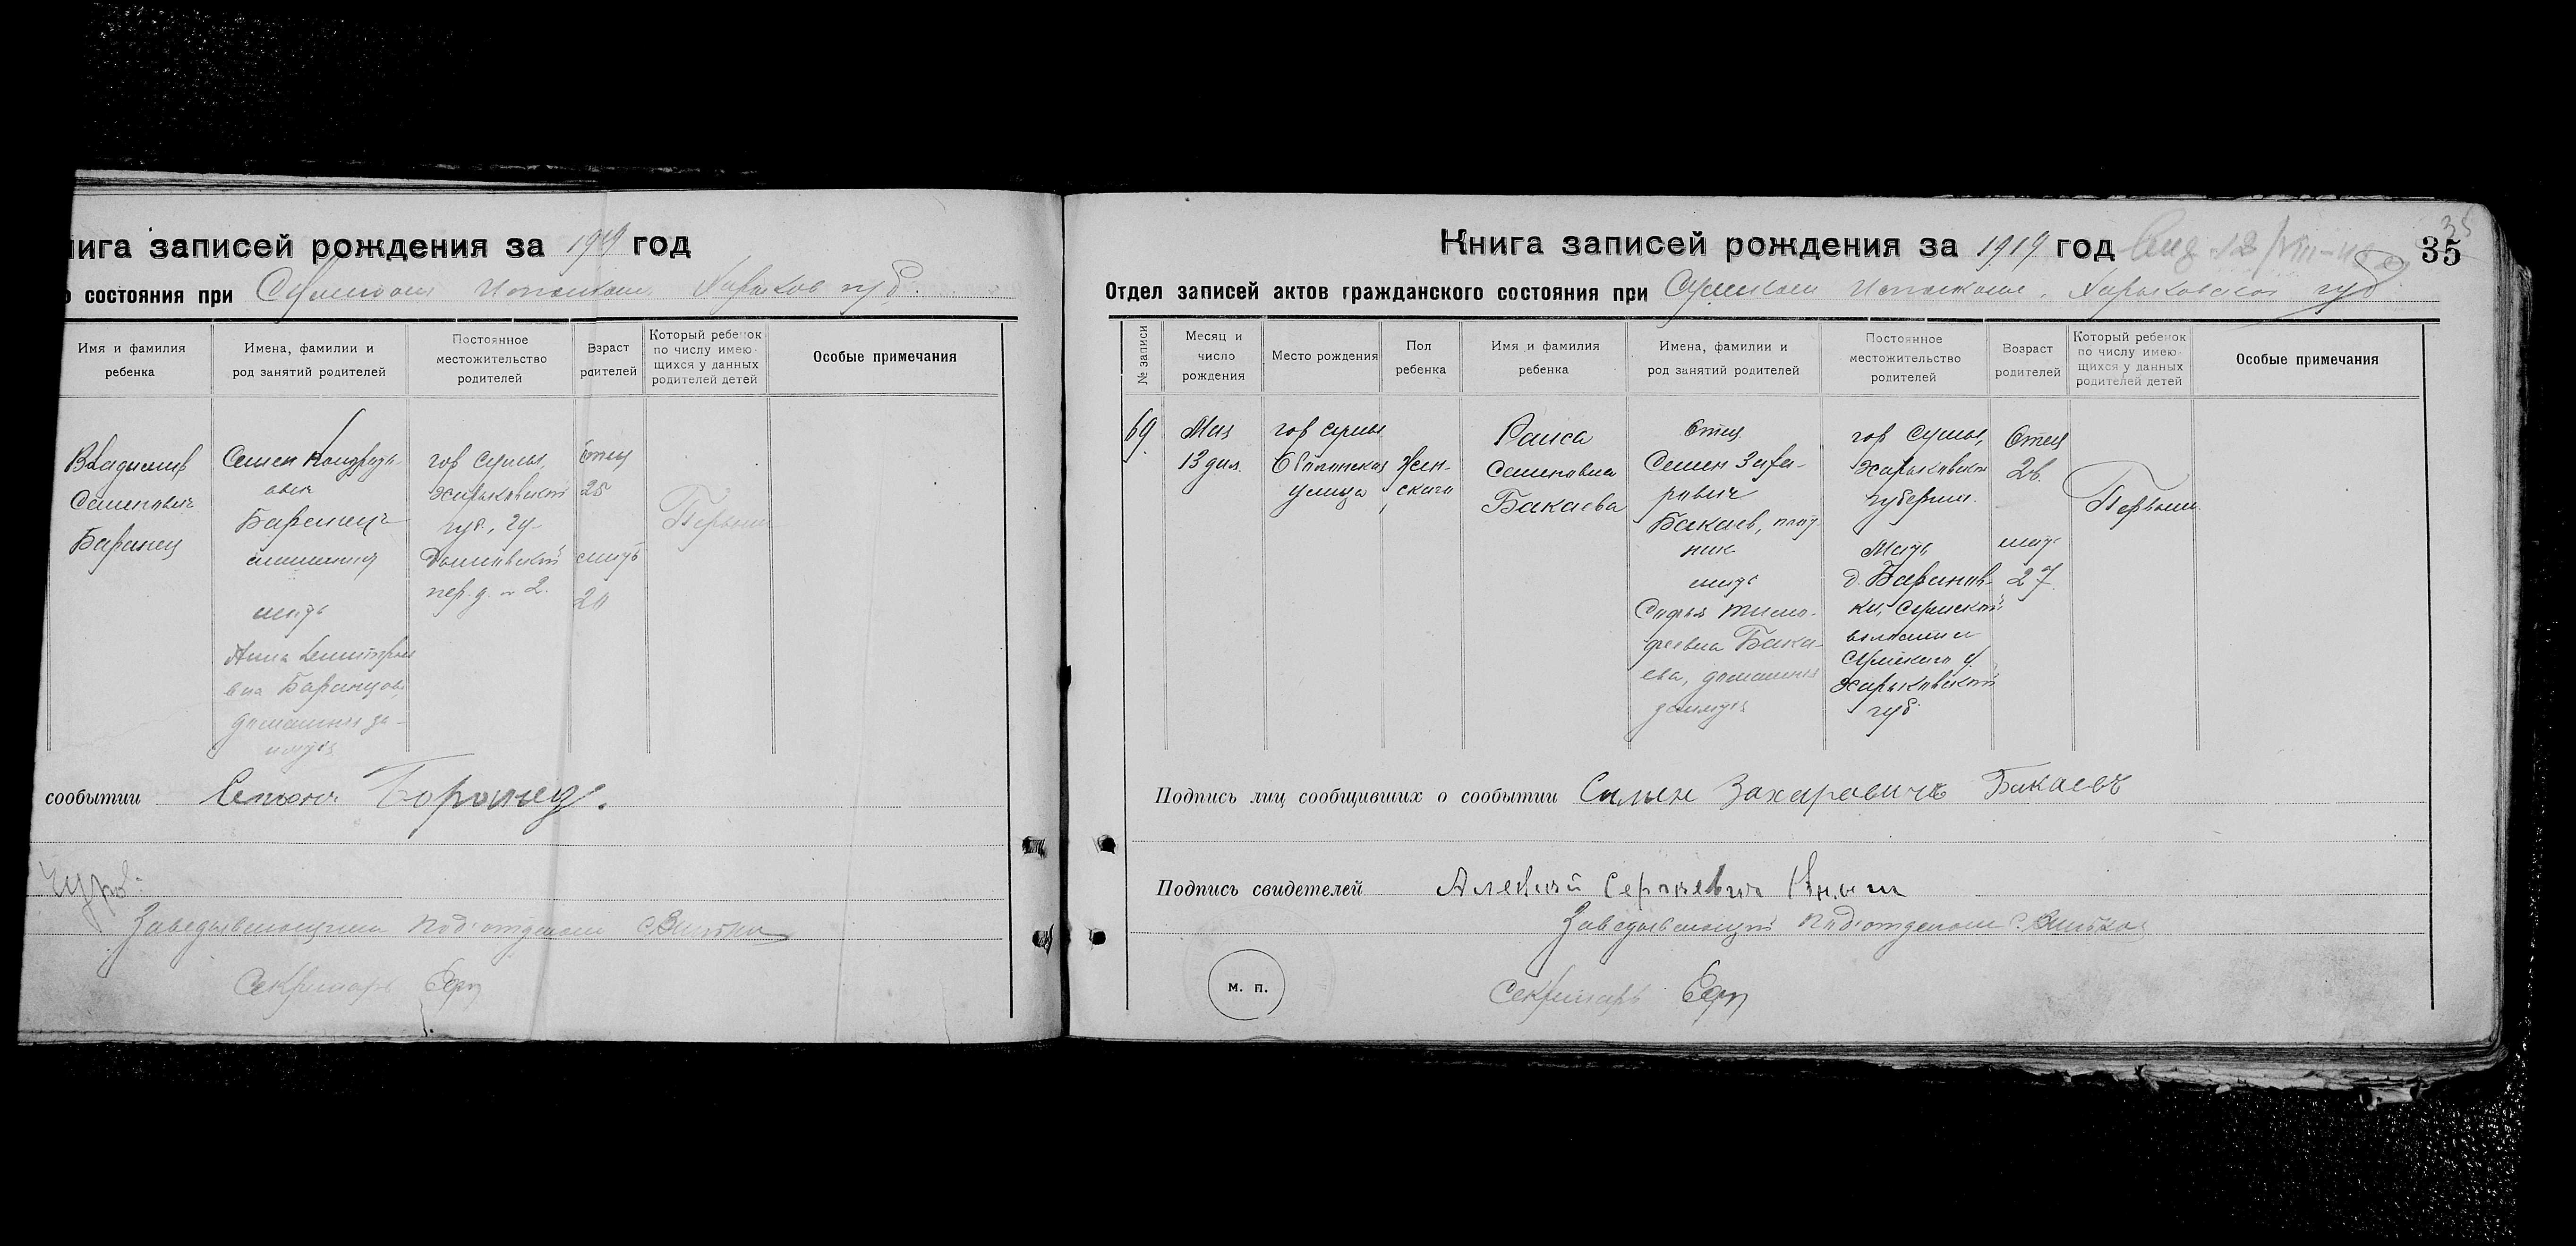 нига записей рождения за 1919 год
о состояния при Сумском Исполкоме Харьков губ.
Имя и фамилия ребенка
Имена, фамилии и род занятий родителей
Постоянное местожительство родителей
Взраст родителей
Который ребенок по числу имею-щихся у данных родителей детей
Особые примечания
Владимир
Семенович
Баранец
Семен Кондрать-
евич
Баранец
мать
Анна Дмитриев
вна Баранцова
домашния за-
нятия
гор Сумы,
Харьковской
губ.,
пер. д. № 2.
Отец
25
мать
20
Первый
сообытии Семен Боронец.
Заведывающий Под'отделом
Секретарь
Книга записей рождения за 1919 год
35
35
Отдел записей актов гражданского состояния при Сумском Исполкоме, Харьковской губ
№ записи
Месяц и число рождения
Место рождения
Пол ребенка
Имя и фамилия ребенка
Имена, фамилии и род занятий родителей
Постоянное местожительство родителей
Возраст родителей
Который ребенок по числу имею-щихся у данных родителей детей
Особые примечания
69.
Мая
13 дня.
гор Сумы
улица
Жен-
ского
Раиса
Семеновна
Бакаева
Отец
Семен Заха-
рович
Бакаев, плот-
ник
мать
Софья Тимо-
феевна Бака-
ева, домашния
занятия
гор Сумы,
Харьковской
губернии.
Мать
д. Баранов-
ки, Сумской
волости
Сумского у.
Харьковской
губ.
Отец
28.
мать
27.
Первый
Подпись лиц сообщивших о сообытии Семен Захаровичъ Бакаевъ
Подпись свидетелей Алексей Сергеевич
Заведывающий Под'отделом
м. п.
Секретарь